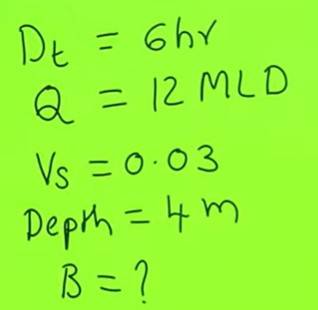 Dt = 6hr
Q = 12 MLD
Vs = 0.03
Depth = 4 m
B = ?